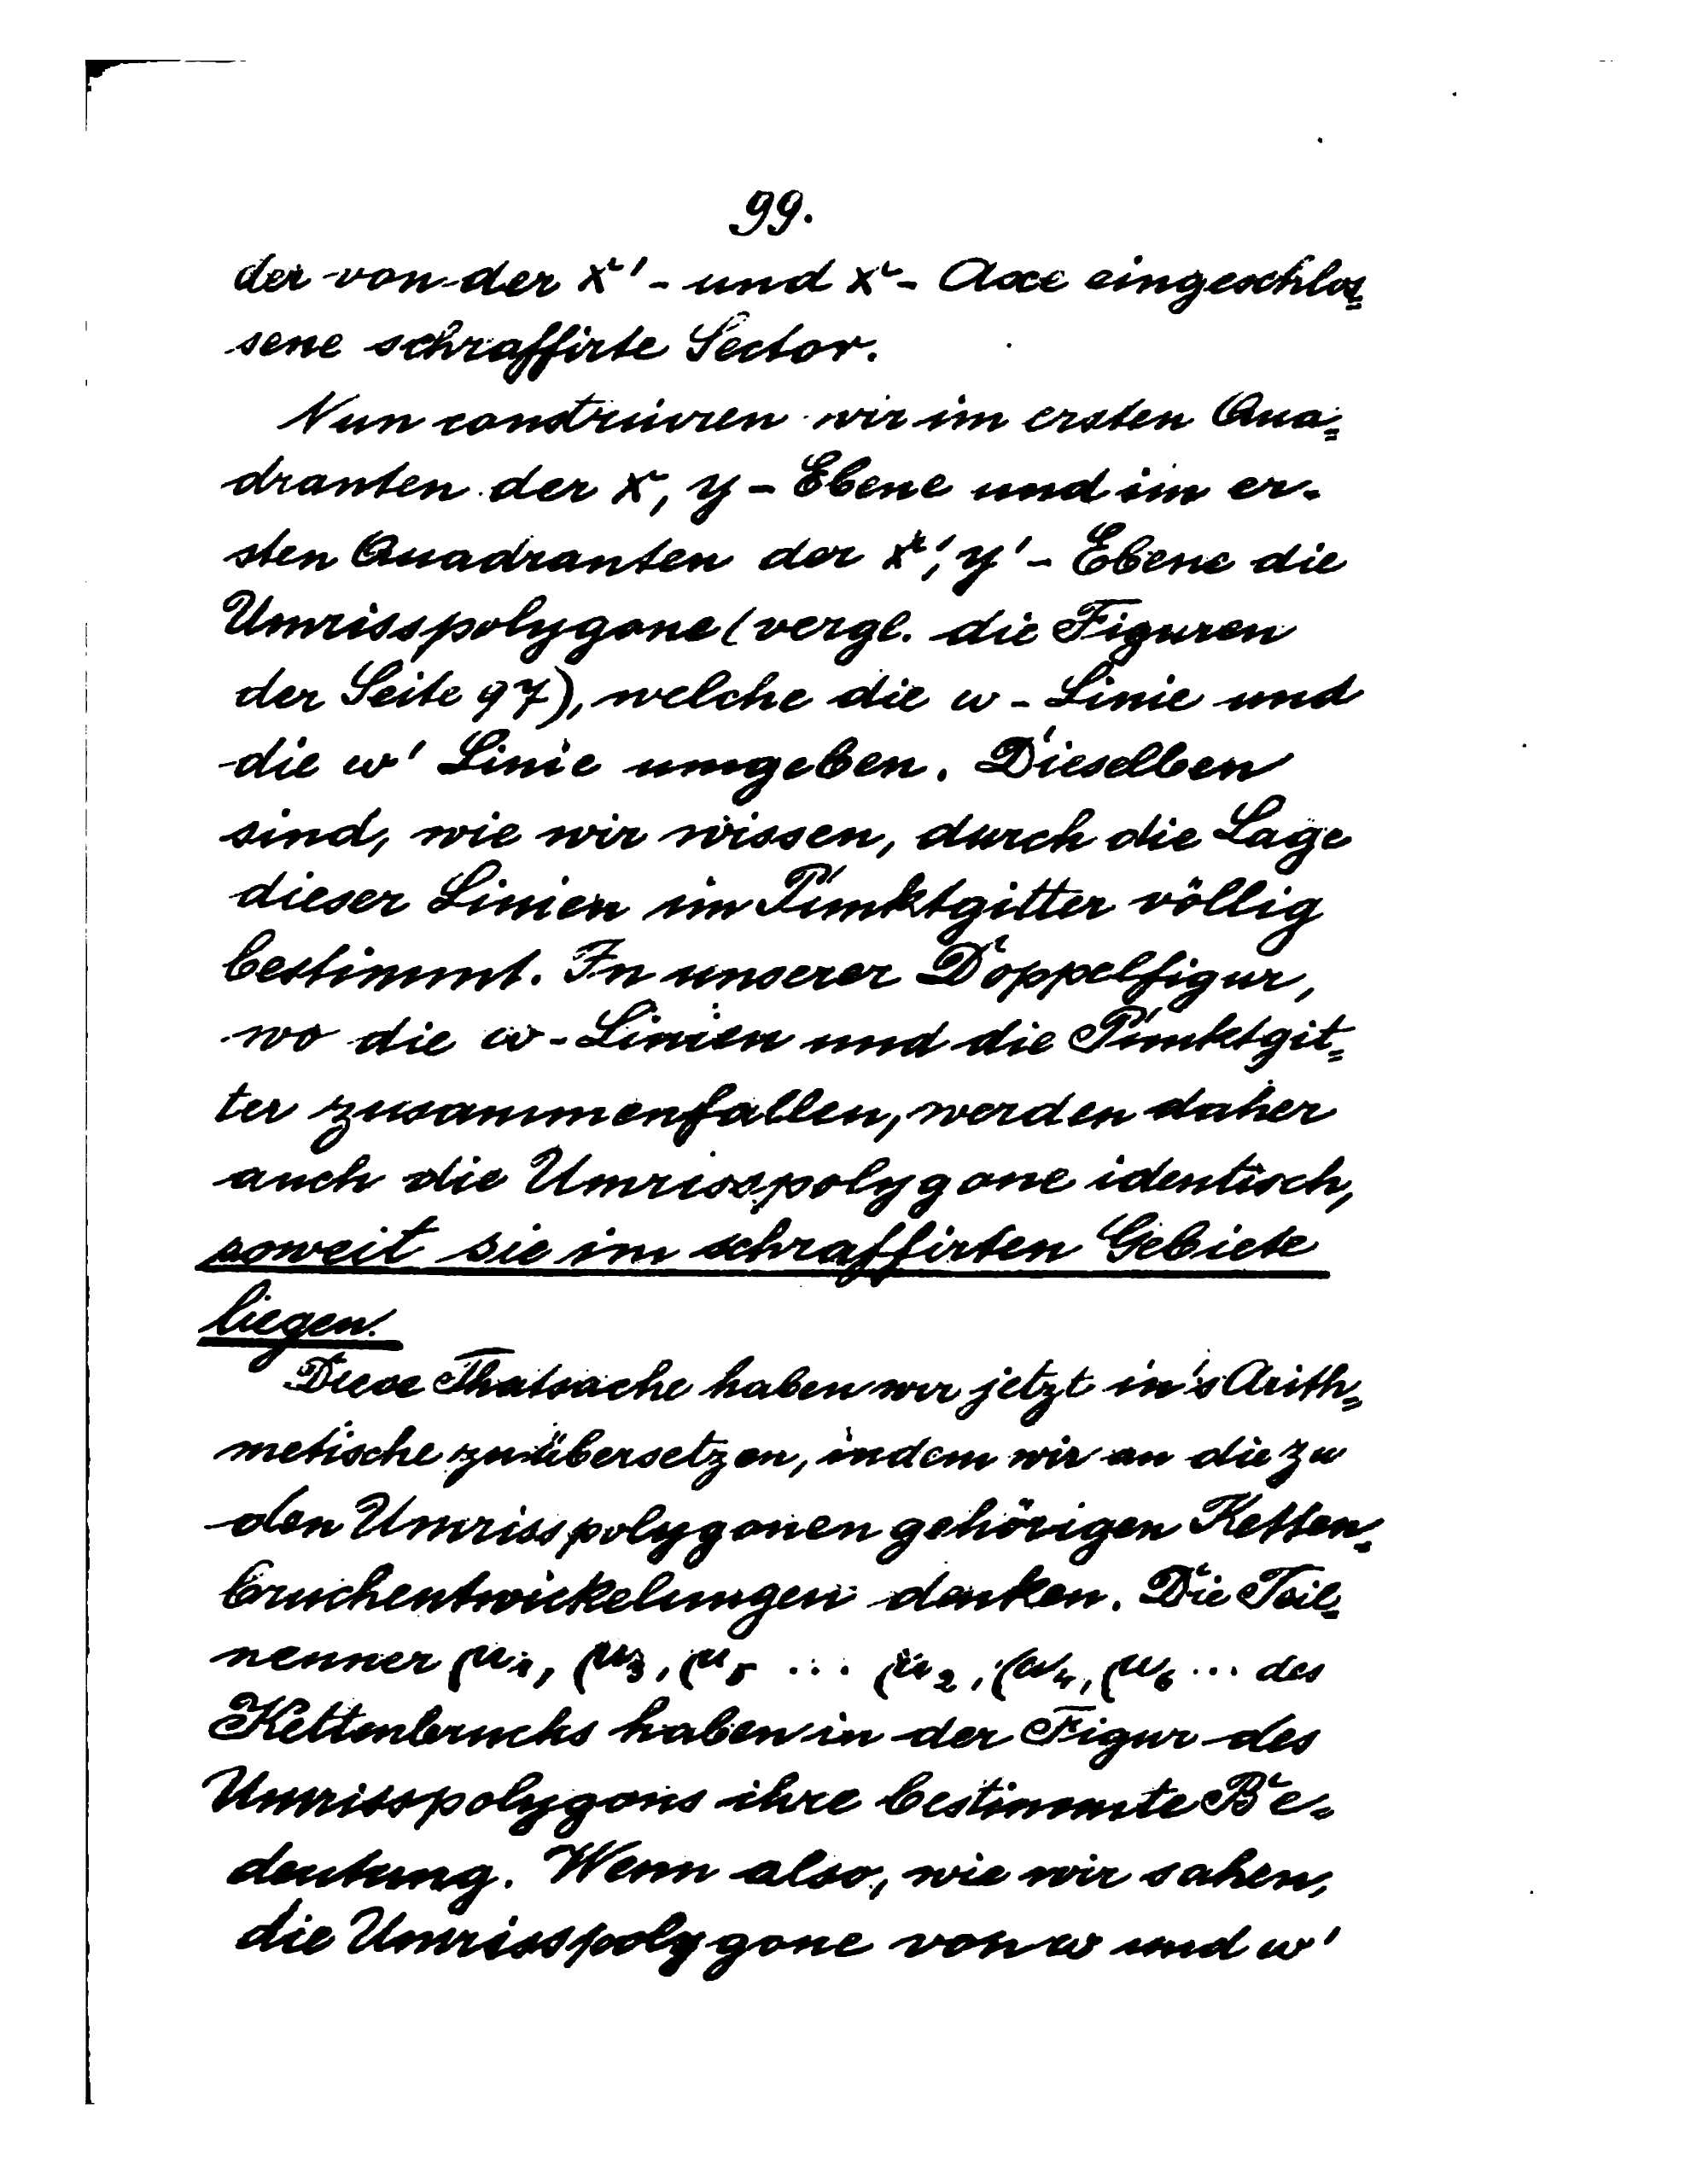 99.
der von der x'- und x - Axe eingeschlos=
sene schraffirte Sector.
Nun construiren wir im ersten Qua=
dranten der x, y - Ebene und im er-
sten Quadranten der x', y' - Ebene die
Umrisspolygone (vergl. die Figuren
der Seite 97), welche die w - Linie und
die w' Linie umgeben. Dieselben
sind, wie wir wissen, durch die Lage
dieser Linien im Punktgitter völlig
bestimmt. In unserer Doppelfigur,
wo die w - Linien und die Punktgit=
ter zusammenfallen, werden daher
auch die Umrisspolygone identisch,
soweit sie im schraffirten Gebiete
liegen.
Diese Thatsache haben wir jetzt in's Arith=
metische zu übersetzen, indem wir an die zu
den Umrisspolygonen gehörigen Ketten=
bruchentwickelungen denken. Die Teil=
nenner μ₁, μ₃, μ₅ ... μ₂, μ₄, μ₆ ... des
Kettenbruchs haben in der Figur des
Umrisspolygons ihre bestimmte Be=
deutung. Wenn also, wie wir sahen,
die Umrisspolygone von w und w'